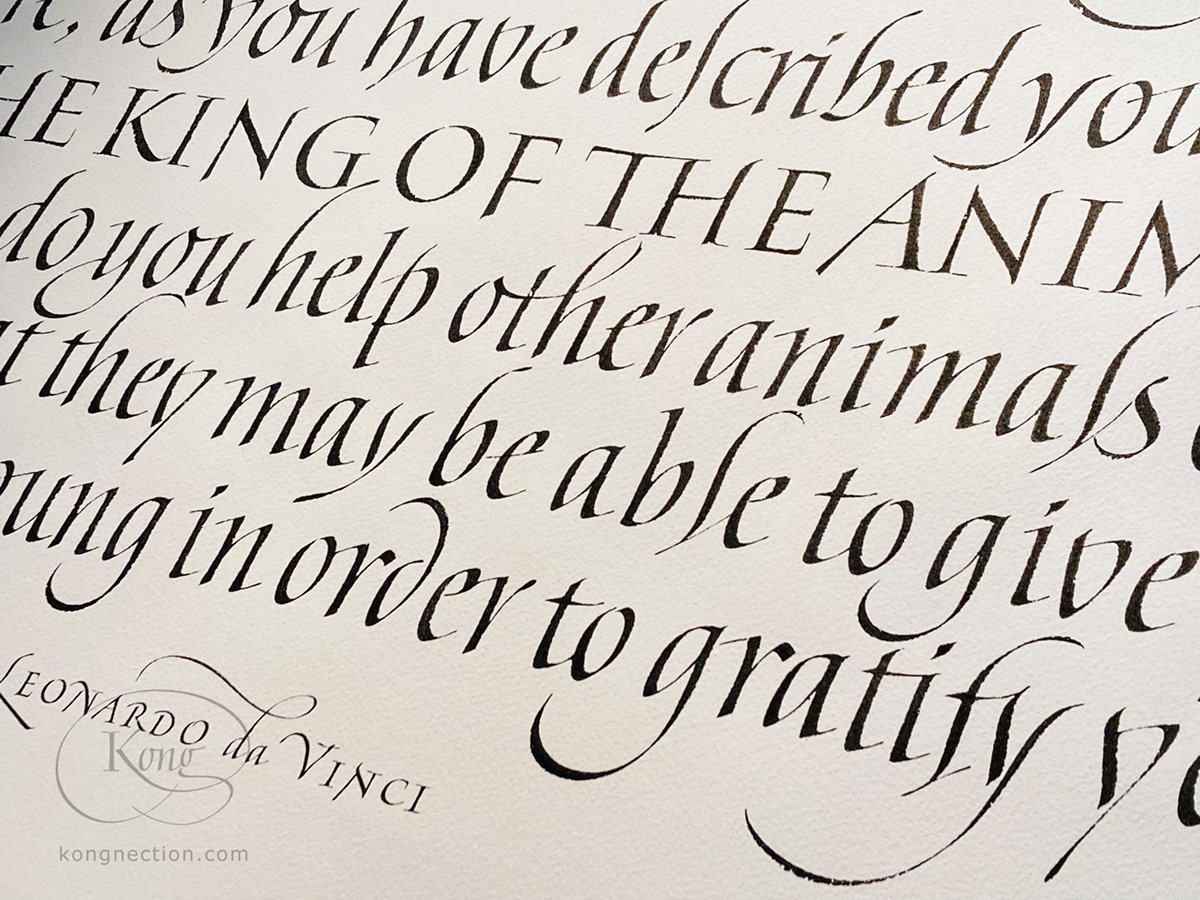 as you have deſcribed you
HE KING OF THE ANIM
do you help other animals
they may be able to give
oung in order to gratify
LEONARDO da VINCI
Kong
kongnection.com